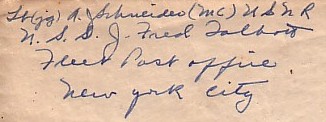 Lt(jg) A. Schneider (MC) USNR
U.S.S. J. Fred Talbott
Fleet Post office
New york City